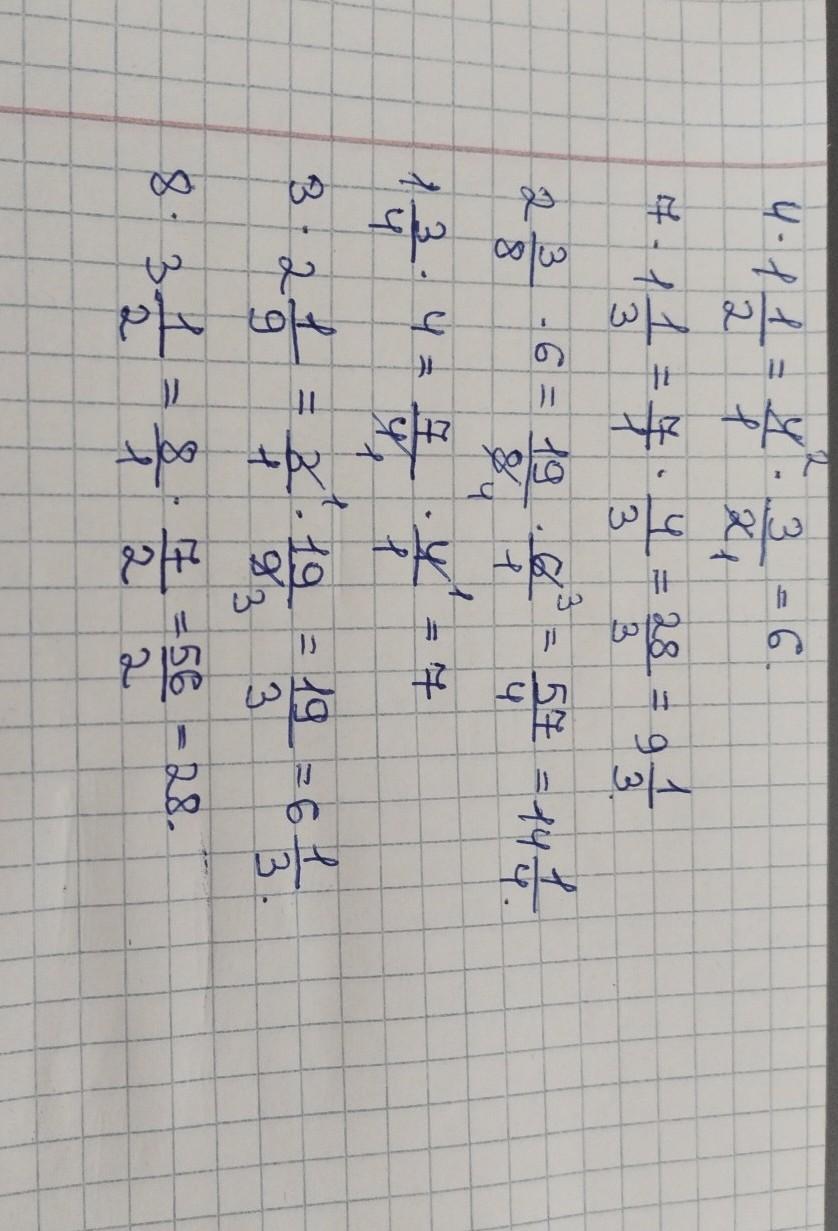 4 · 1 1/2 = 4/1 · 3/2 = 6.
7 · 1 1/3 = 7/1 · 4/3 = 28/3 = 9 1/3.
2 3/8 · 6 = 19/8 4 · 6/1 3 = 57/4 = 14 1/4.
1 3/4 · 4 = 7/4 1 · 4/1 1 = 7
3 · 2 1/9 = 3/1 1 · 19/9 3 = 19/3 = 6 1/3.
8 · 3 1/2 = 8/1 · 7/2 = 56/2 = 28.